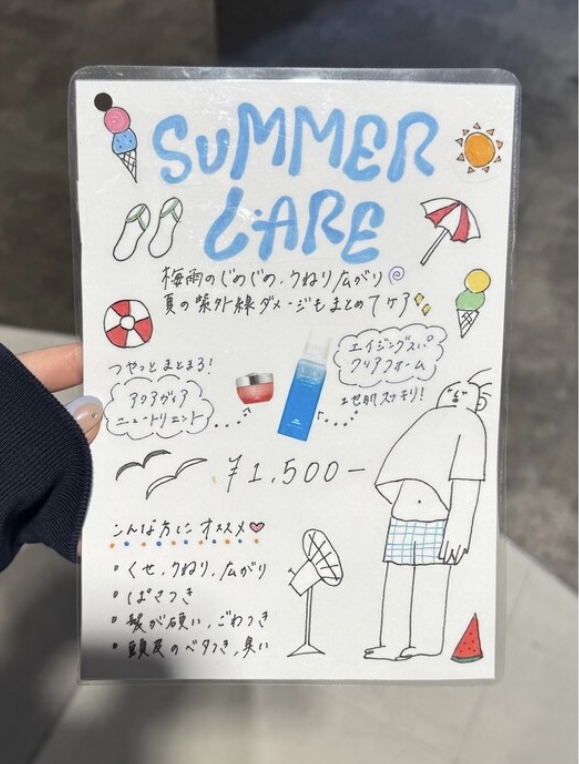 SUMMER
CARE
梅雨のじめじめ、うねり広がり
夏の紫外線ダメージもまとめてケア
つやっとまとまる!
アクアヴィア
ニュートリエント
エイジングスパ
クリアフォーム
地肌スッキリ!
¥1,500-
こんな方にオススメ♡
・くせ、うねり、広がり
・ぱさつき
・髪が硬い、ごわつき
・頭皮のベタつき、臭い